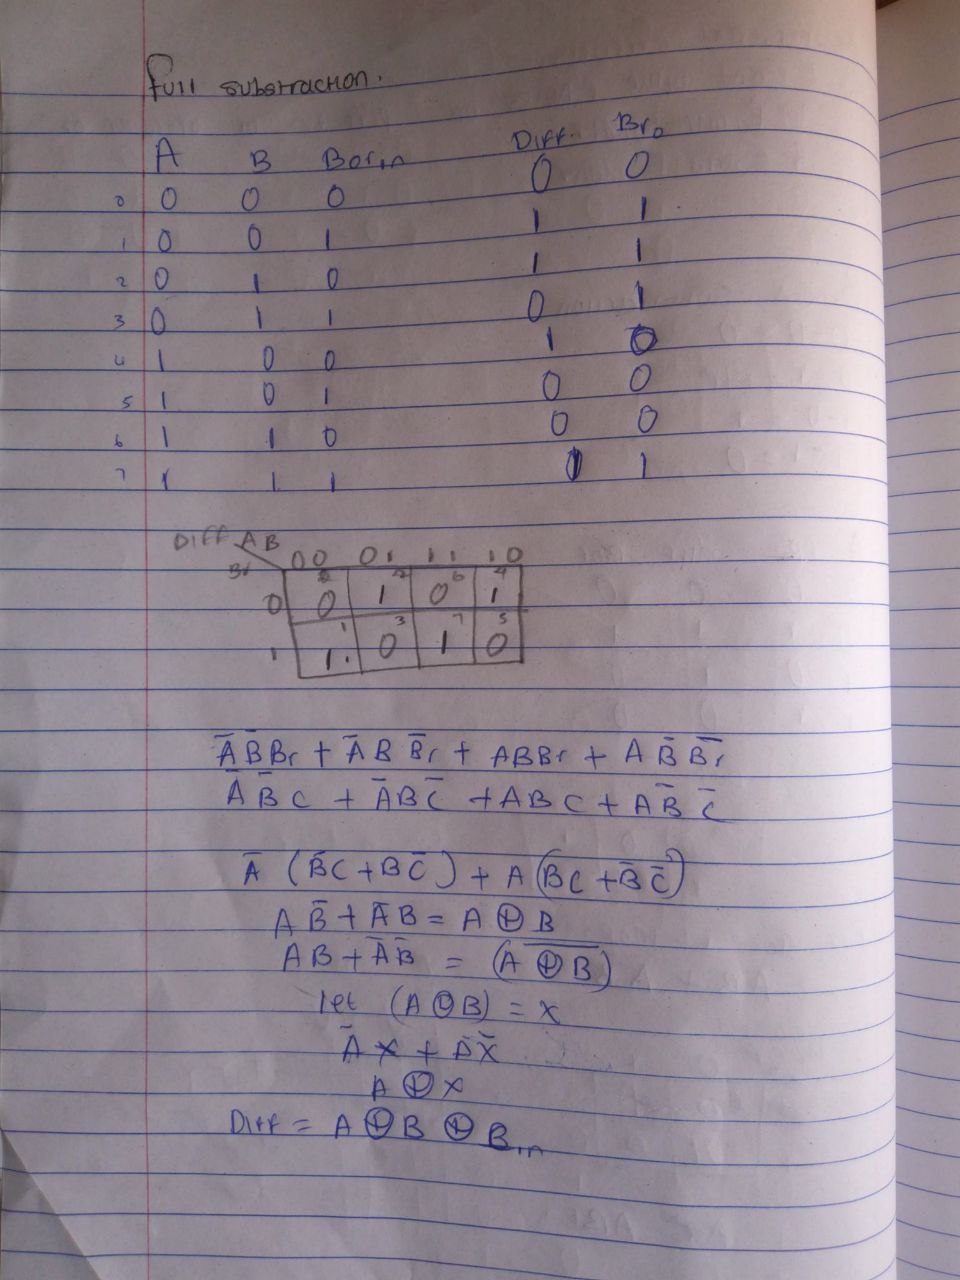 Full substraction.
A B Bor in Diff. Br₀
0 0 0 0 0 0
1 0 0 1 1 1
2 0 1 0 1 1
3 0 1 1 0 1
4 1 0 0 1 0
5 1 0 1 0 0
6 1 1 0 0 0
7 1 1 1 1 1
Diff AB 00 01 11 10
Br
0 0 1 2 0 6 1 4
1 1. 1 0 3 1 7 0 5
A̅ B̅ Br + A̅ B B̅r + A B Br + A B̅ B̅r
A̅ B̅ C + A̅ B C̅ + A B C + A B̅ C̅
A̅ (B̅C + BC̅) + A (BC + B̅ C̅)
A B̅ + A̅ B = A ⊕ B
AB + A̅B̅ = (A̅ ⊕̅ B̅)
let (A ⊕ B) = x
A̅ x + A x̅
A ⊕ x
Diff = A ⊕ B ⊕ B in